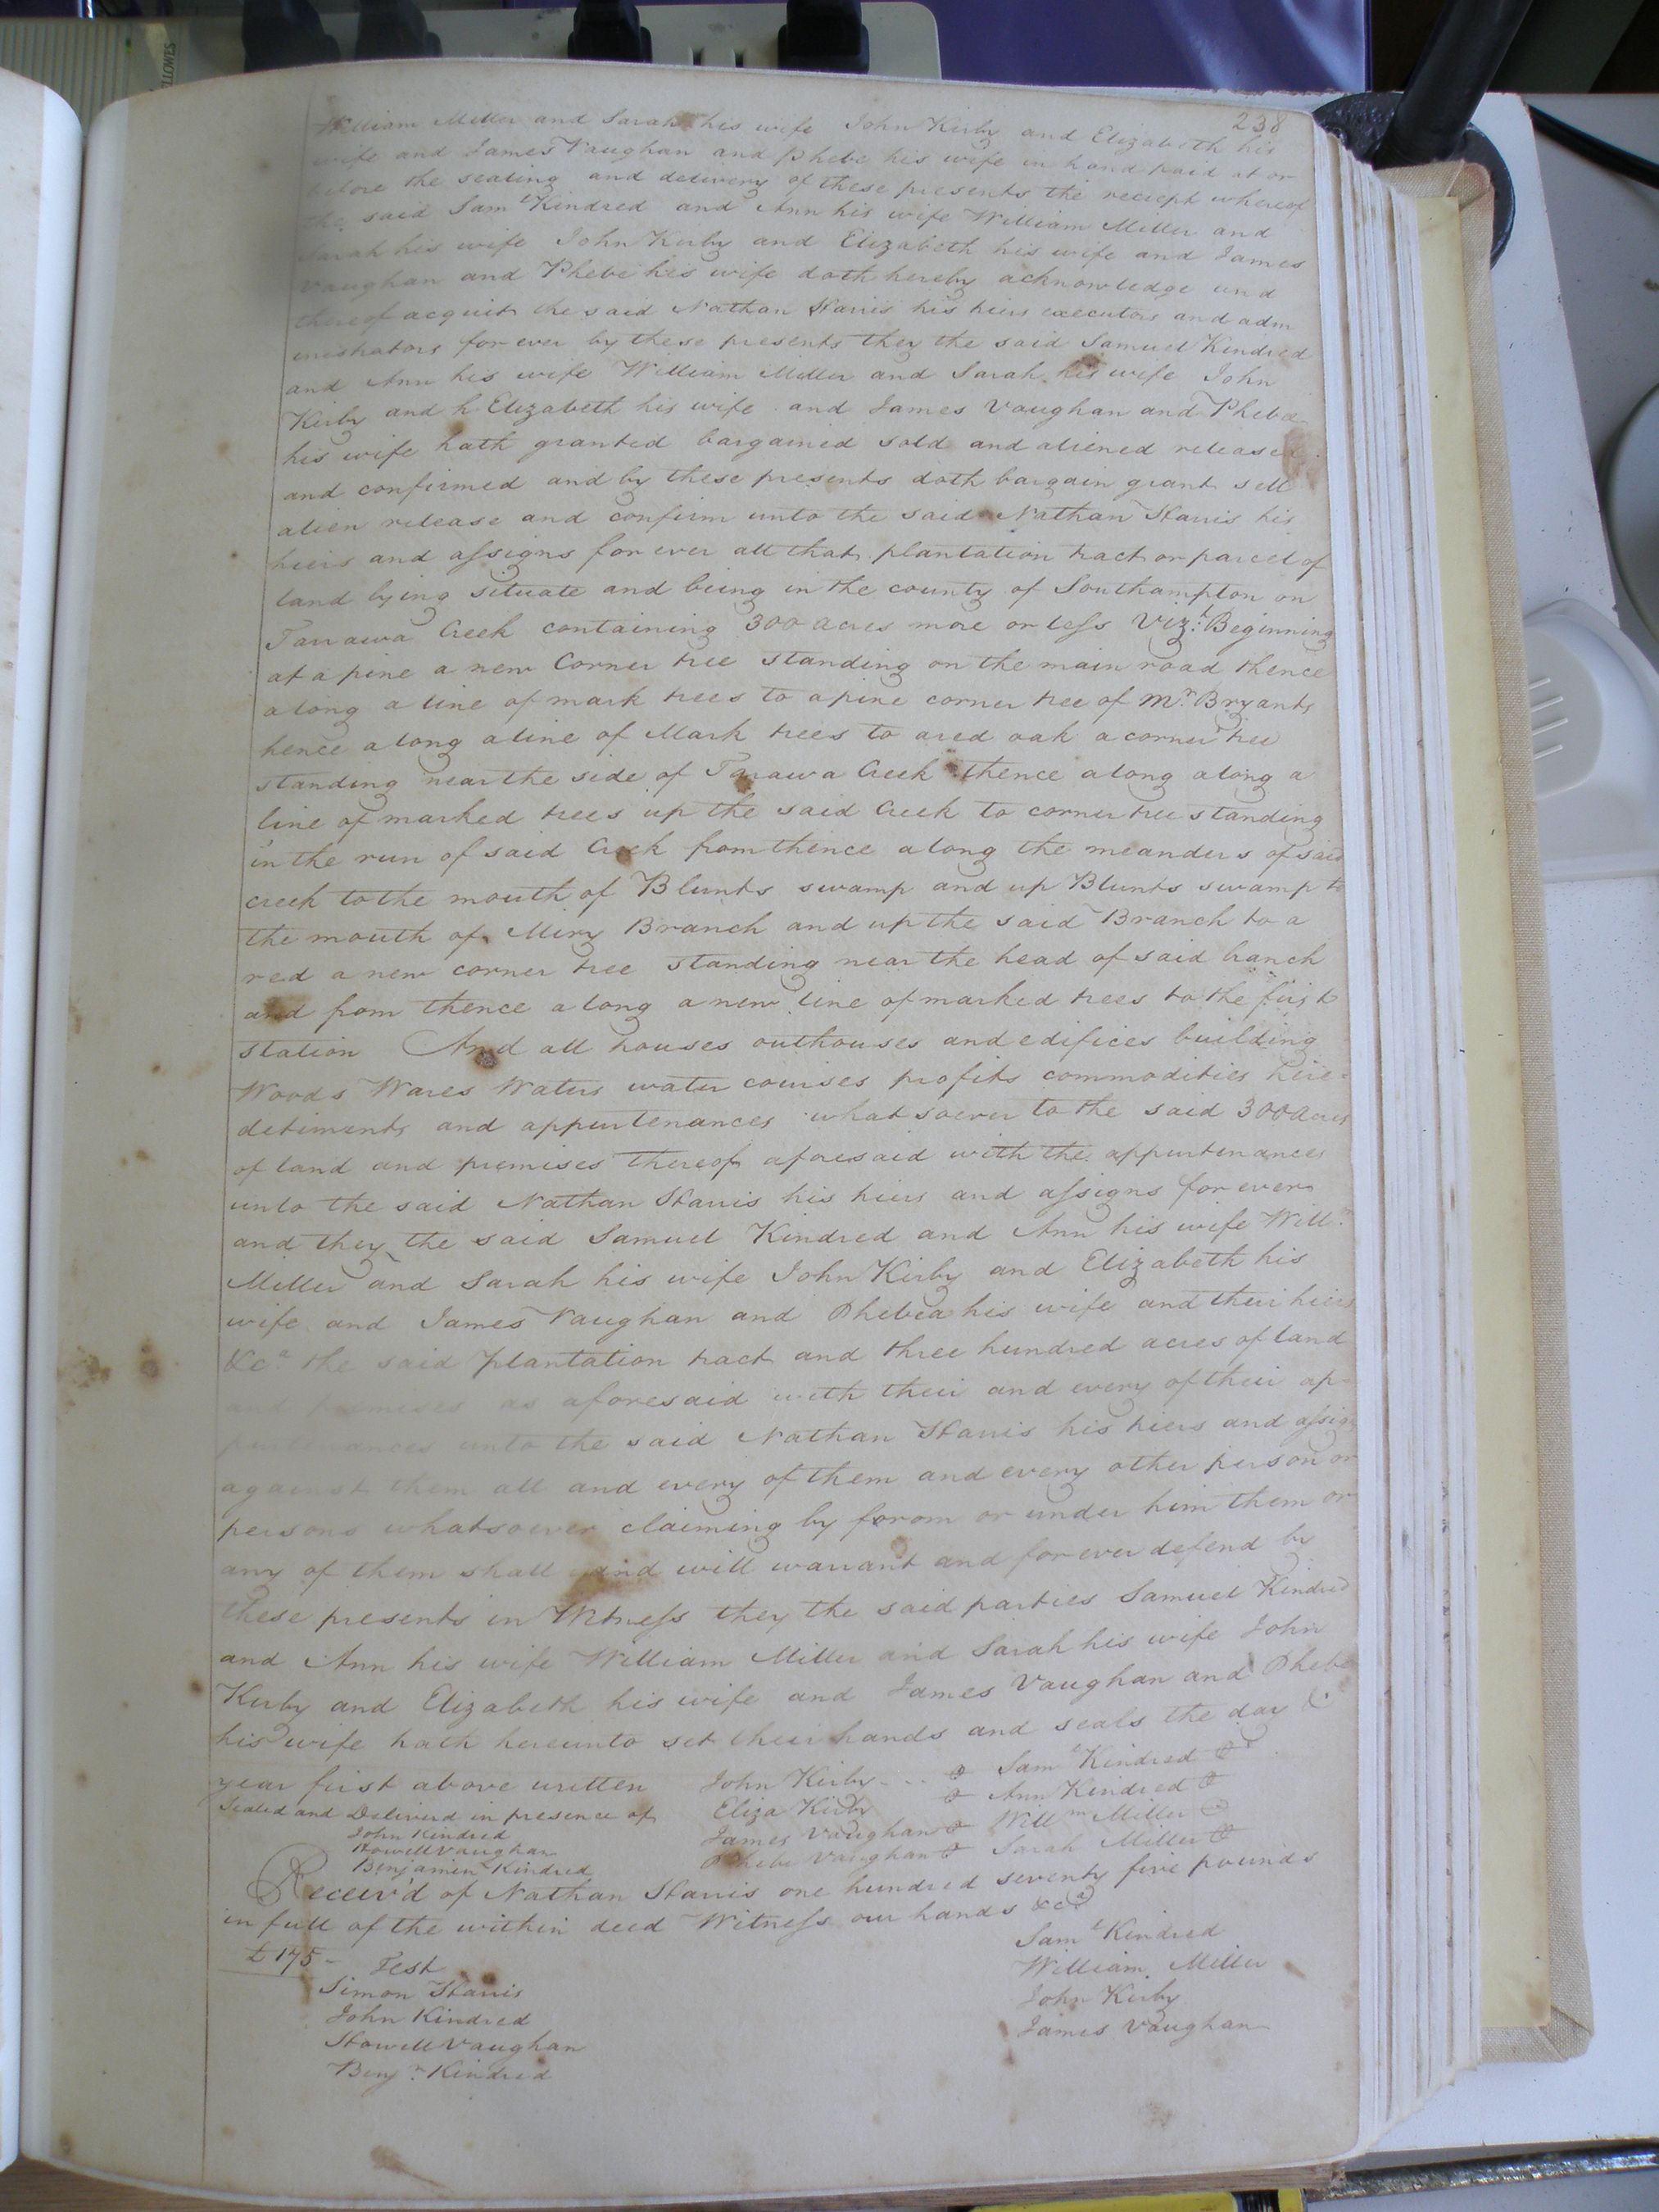 238
William Miller and Sarah his wife John Kirby and Elizabeth his
wife and James Vaughan and Phebe his wife in hand paid at or
before the sealing and delivery of these presents the reciept whereof
the said Saml Kindred and Ann his wife William Miller and
Sarah his wife John Kirby and Elizabeth his wife and James
Vaughan and Phebe his wife doth hereby acknowledge and
thereof acquit the said Nathan Harris his heirs executors and adm
inistrators for ever by these presents they the said Samuel Kindred
and Ann his wife William Miller and Sarah his wife John
Kirby and h Elizabeth his wife and James Vaughan and Phebe
his wife hath granted bargained sold and aliened released
and confirmed and by these presents doth bargain grant sell
alien release and confirm unto the said Nathan Harris his
heirs and assigns for ever all that plantation tract or parcel of
land lying situate and being in the county of Southampton on
Tarrawa Creek containing 300 acres more or less Vizt: Beginning
at a pine a new Corner tree standing on the main road thence
along a line of mark trees to a pine corner tree of Mr. Bryants
hence along a line of Mark trees to a red oak a corner tree
standing near the side of Tarawa Creek thence along along a
line of marked trees up the said Creek to corner tree standing
in the run of said Creek from thence along the meanders of said
creek to the mouth of Blunts swamp and up Blunts swamp to
the mouth of Miry Branch and up the said Branch to a
red a new corner tree standing near the head of said branch
and from thence along a new line of marked trees to the first
station And all houses outhouses and edifices building
Woods Wares Waters water courses profits commodities here=
detiments and appurtenances whatsoever to the said 300 acres
of land and premises thereof aforesaid with the appurtenances
unto the said Nathan Harris his heirs and assigns for ever
and they the said Samuel Kindred and Ann his wife Willm
Miller and Sarah his wife John Kirby and Elizabeth his
wife and James Vaughan and Phebea his wife and their heirs
&ca. the said plantation tract and three hundred acres of land
and premises as aforesaid with their and every of their ap
purtenances unto the said Nathan Harris his heirs and assigns
against them all and every of them and every other person or
persons whatsoever claiming by forom or under him them or
any of them shall and will warrant and for ever defend by
these presents in Witness they the said parties Samuel Kindred
and Ann his wife William Miller and Sarah his wife John
Kirby and Elizabeth his wife and James Vaughan and Phebe
his wife hath hereunto set their hands and seals the day &
year first above written John Kirby Saml Kindred
Sealed and Deliverd in presence of Eliza Kirby Ann Kindred
John Kindred James Vaughan Willm Miller
Howell Vaughan Phebe Vaughan Sarah Miller
Benjamin Kindred
Receiv'd of Nathan Harris one hundred seventy five pounds
in full of the within deed Witness our hands &ca
£175- Test Saml Kindred
Simon Harris William Miller
John Kindred John Kirby
Howell Vaughan James Vaughan
Benjn. Kindred